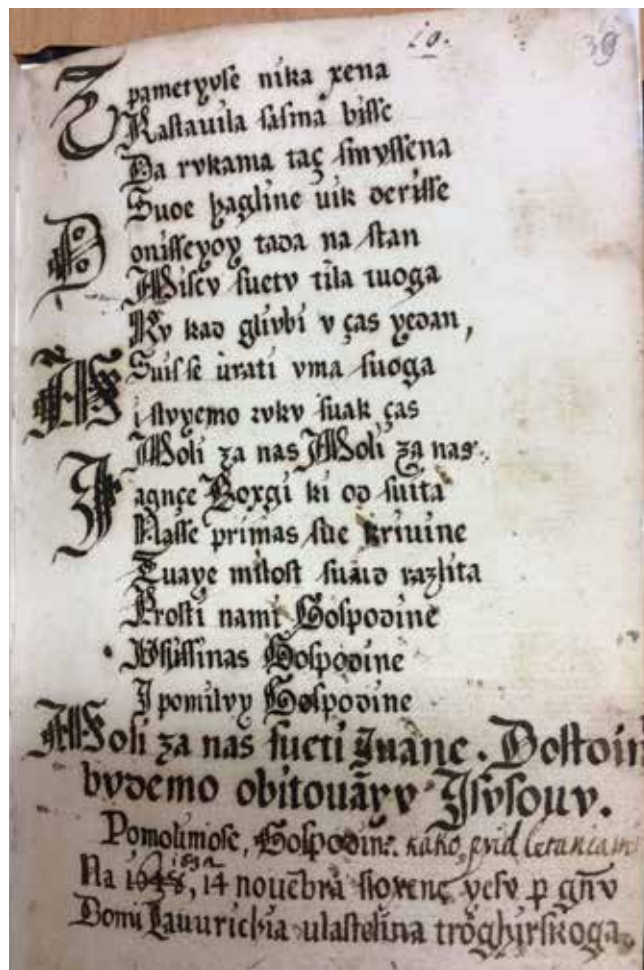 10.
39
Zpametyvse nika xena
Rastauila sasma bisse
Da rvkama taç smyssena
Suoe hagline uik derisse
Donisseyoy tada na stan
Misçv suetv tila tuoga
Kv kad glivbi v ças yedan,
Suisse urati vma suoga
Mi stvyemo rvkv suak ças
Moli za nas Moli za nas.
Jagnçe Boxgi ki od suita
Nasse primas sue kriuine
Tuaye milost suaid razlita
Prosti nami Gospodine
Vslissinas Gospodine
I pomilvy Gospodine
Moli za nas sueti Iuane. Dostoin
bvdemo obitouāyv Isvsouv.
Pomolimose, Gospodine. kako prid Letaniami
Na 1648, 14 nouēbra sloxene yesv p gñv
Domi Lauurichia ulastelina troghirskoga